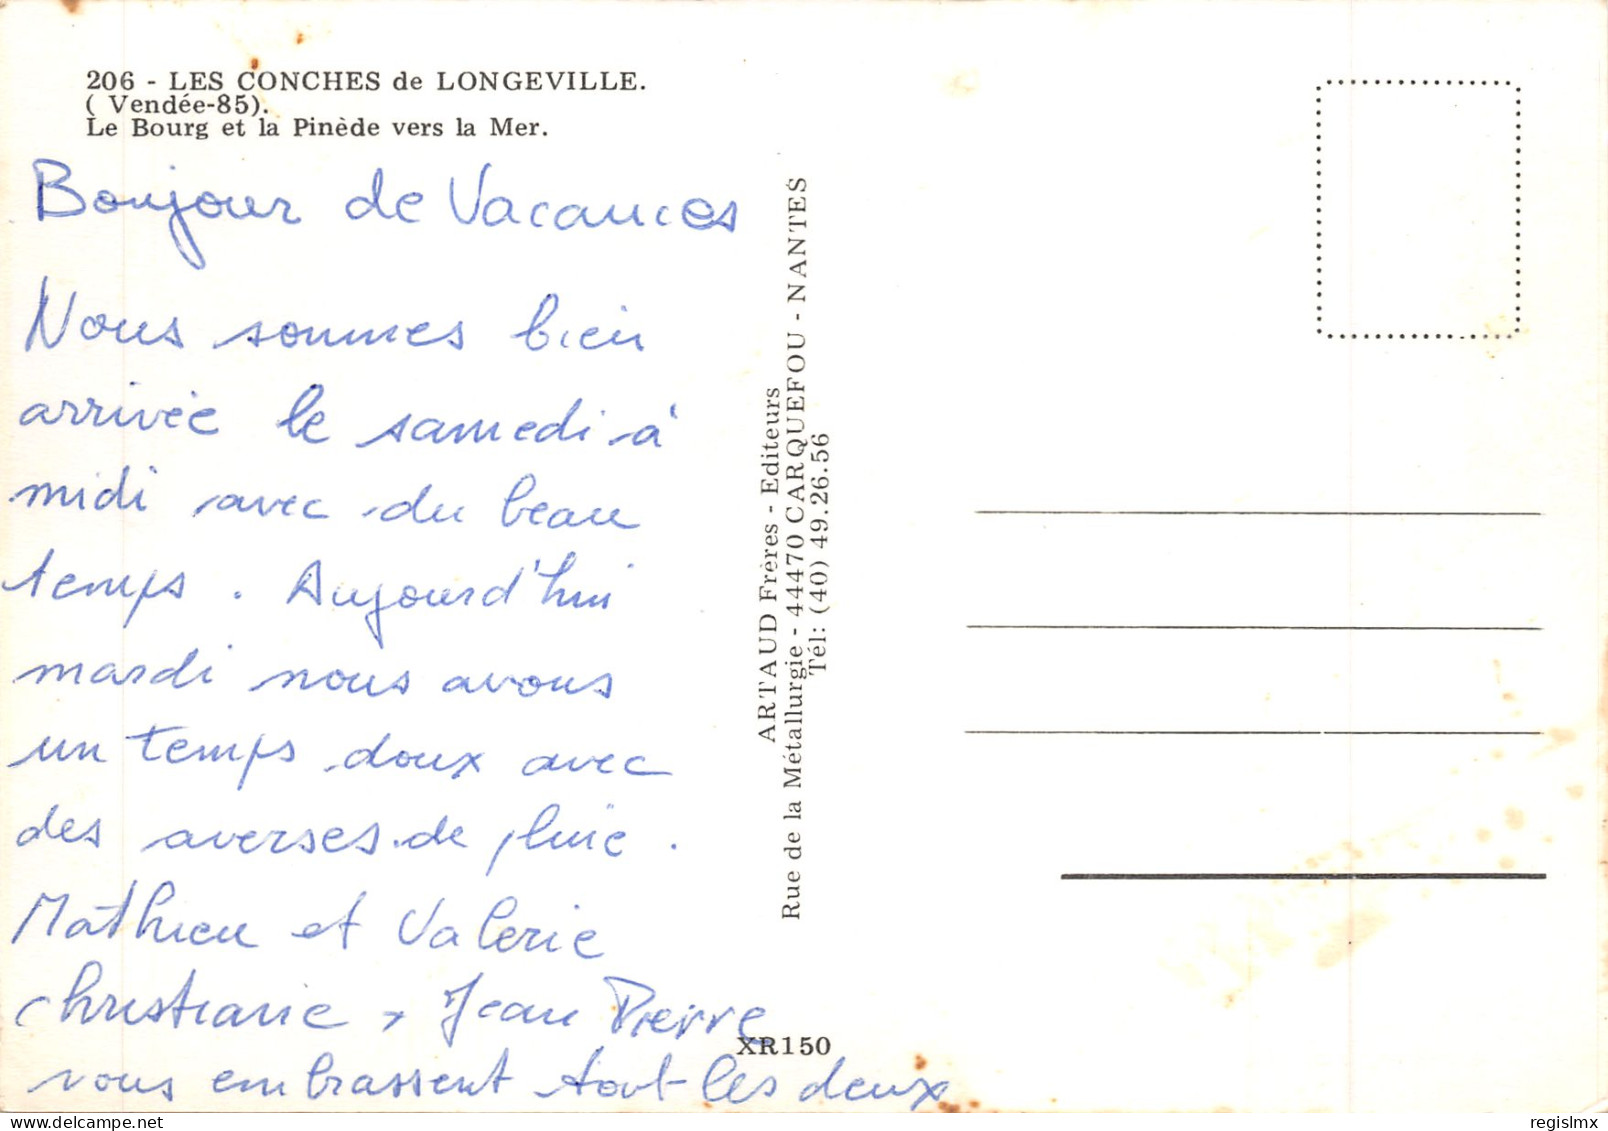 206 - LES CONCHES de LONGEVILLE.
( Vendée-85).
Le Bourg et la Pinède vers la Mer.
Bonjour de Vacances
Nous sommes bien
arrivée le samedi à
midi avec du beau
temps. Aujourd'hui
mardi nous avons
un temps doux avec
des averses de pluie.
Mathieu et Valerie
christiane, Jean Pierre
vous embrassent tout les deux
ARTAUD Frères - Editeurs
Rue de la Métallurgie - 44470 CARQUEFOU - NANTES
Tél: (40) 49.26.56
XR150
regislmx